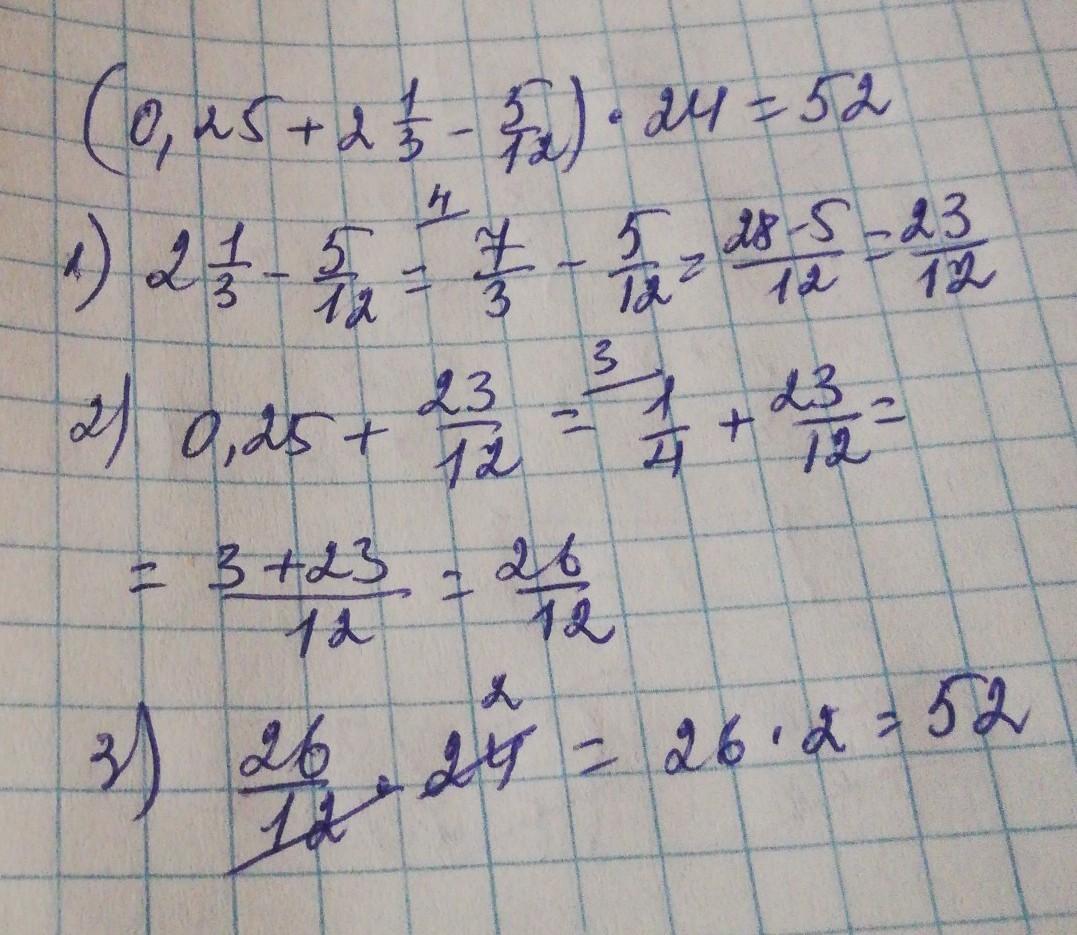 (0,25 + 2 1/3 - 5/12) · 24 = 52
1) 2 1/3 - 5/12 = 4 7/3 - 5/12 = 28-5/12 = 23/12
2) 0,25 + 23/12 = 3 1/4 + 23/12 =
= 3+23/12 = 26/12
3) 26/12 · 24 2 = 26 · 2 = 52